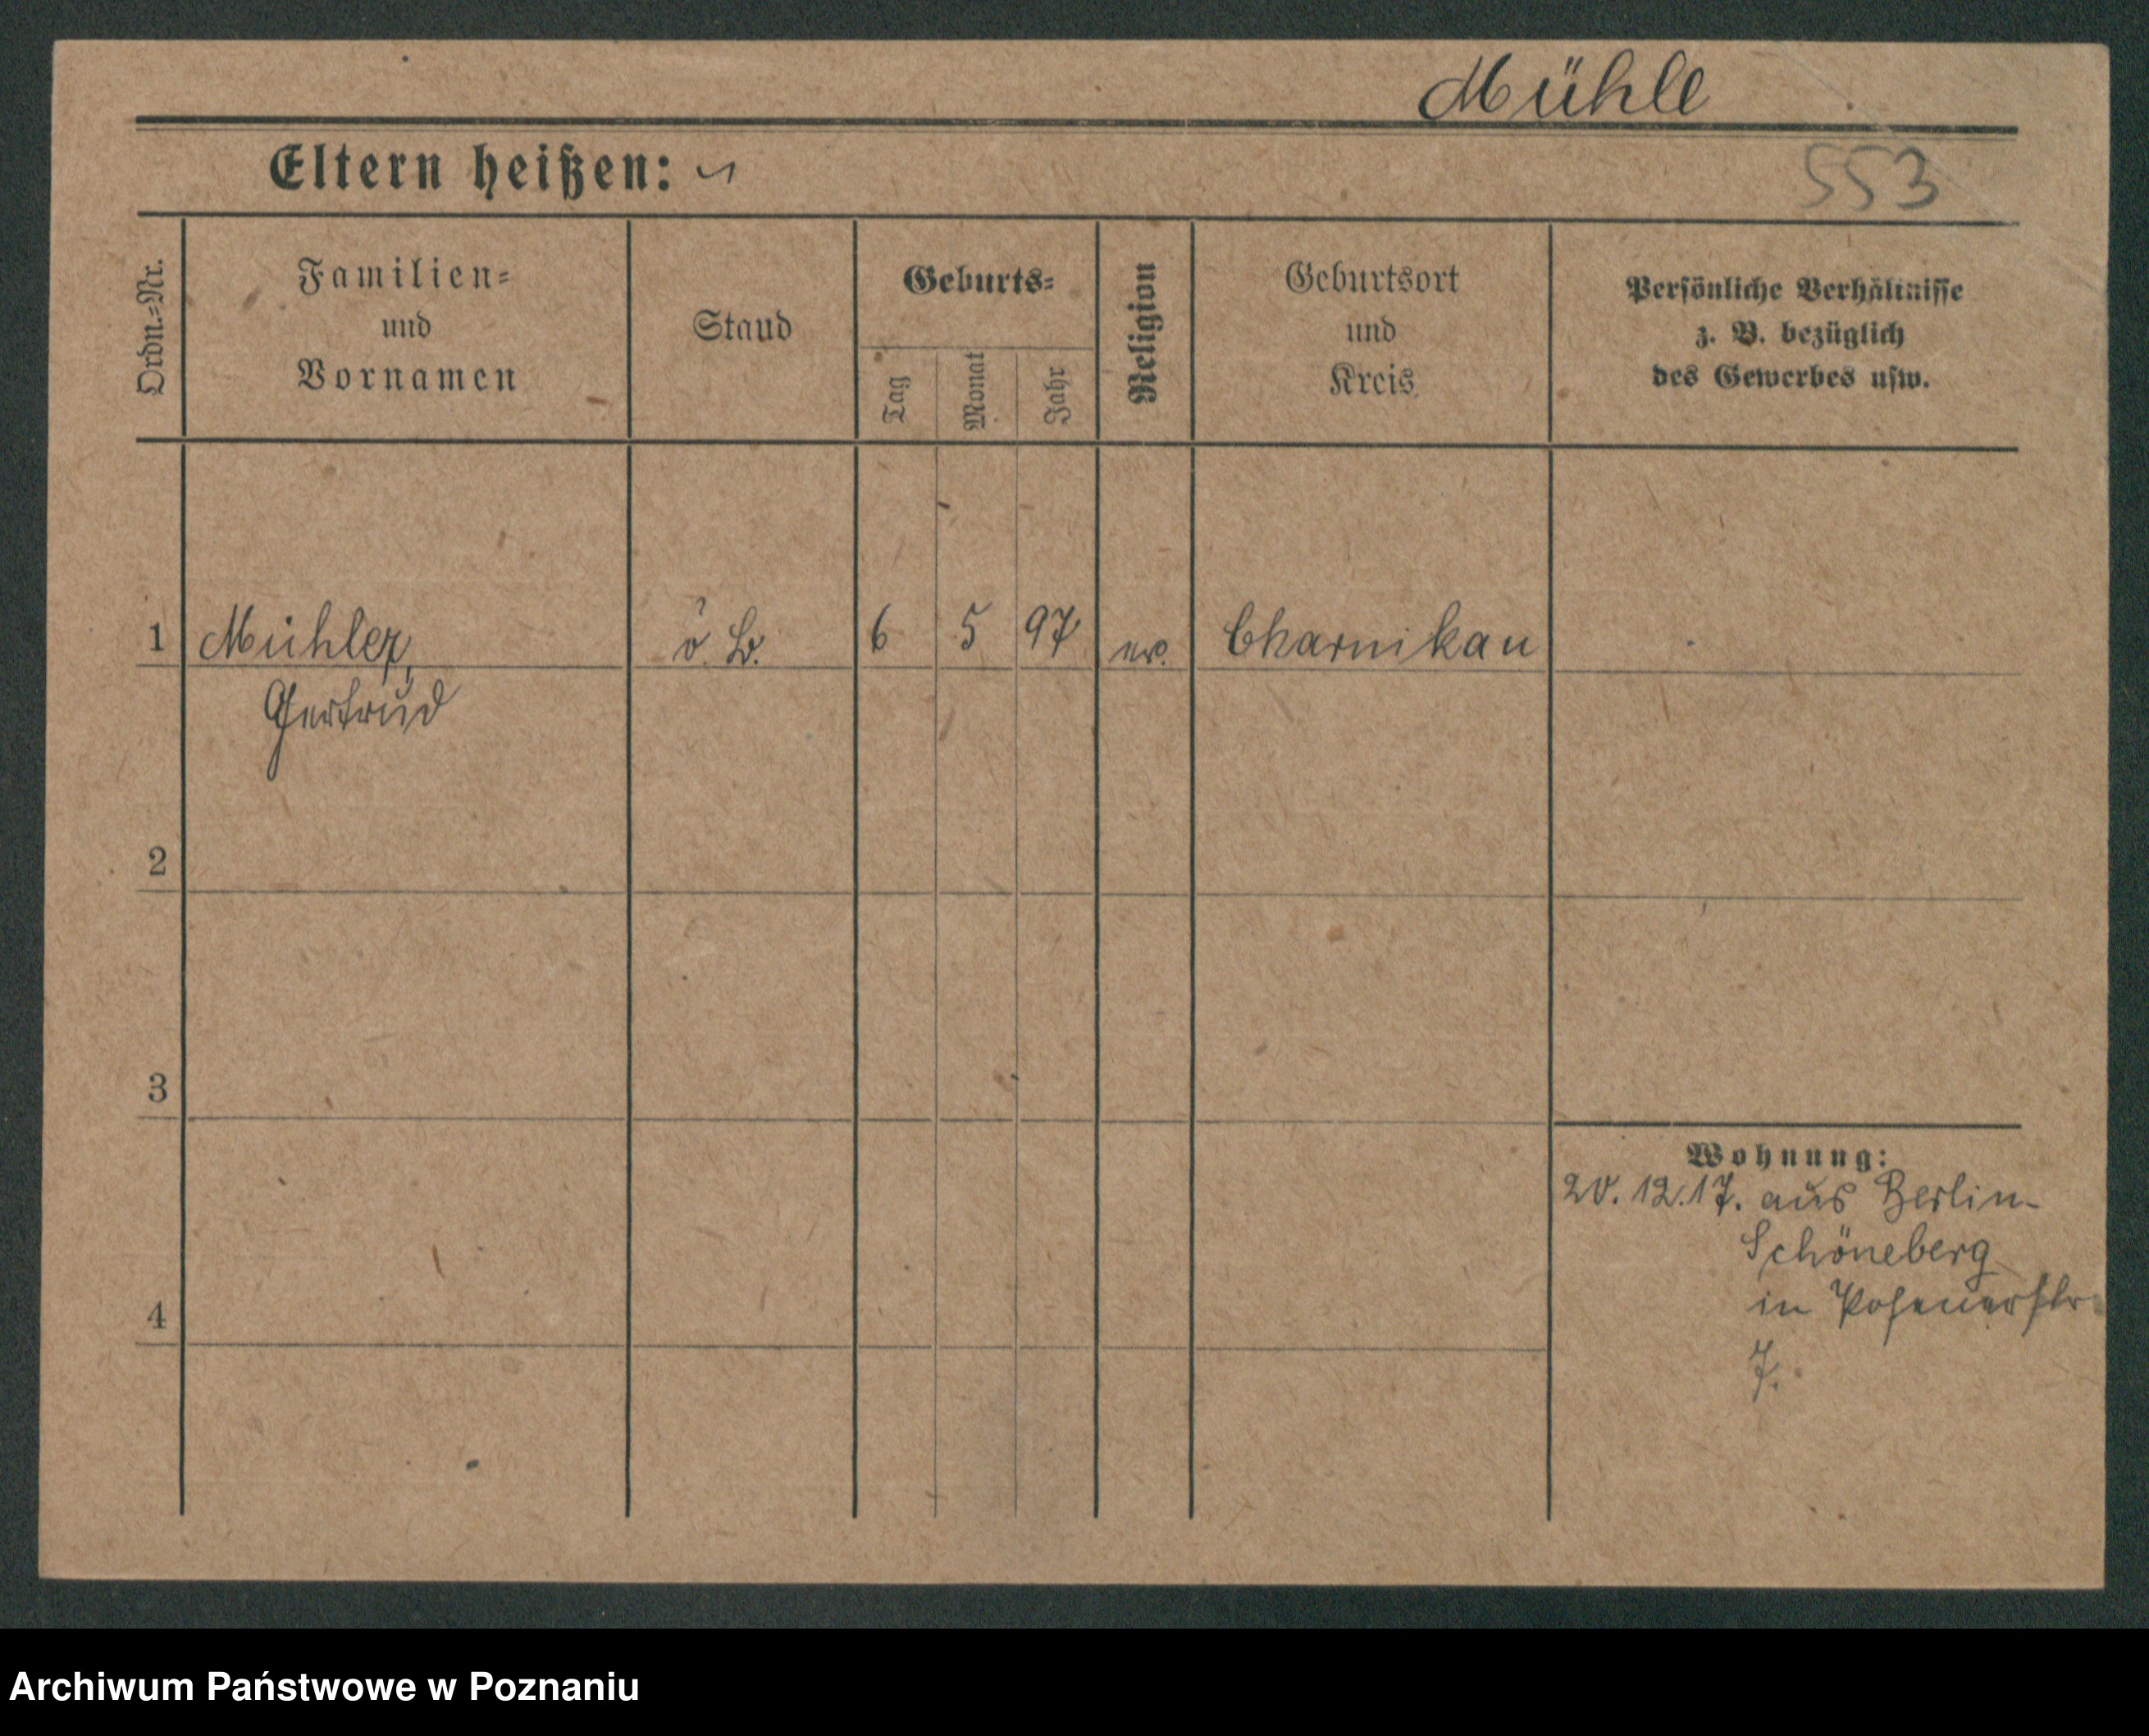 Mühle
Eltern heißen:
553
Ordn.=Nr.
Familien=
und
Vornamen
Stand
Geburts=
Tag
Monat
Jahr
Religion
Geburtsort
und
Kreis
Persönliche Verhältnisse
z. B. bezüglich
des Gewerbes usw.
1 Mühler, 6 5 97 ev. Charnikau
Gertrud
2
3
Wohnung:
20.12.17. aus Berlin-
Schöneberg
in Posenerstr
4
7.
Archiwum Państwowe w Poznaniu